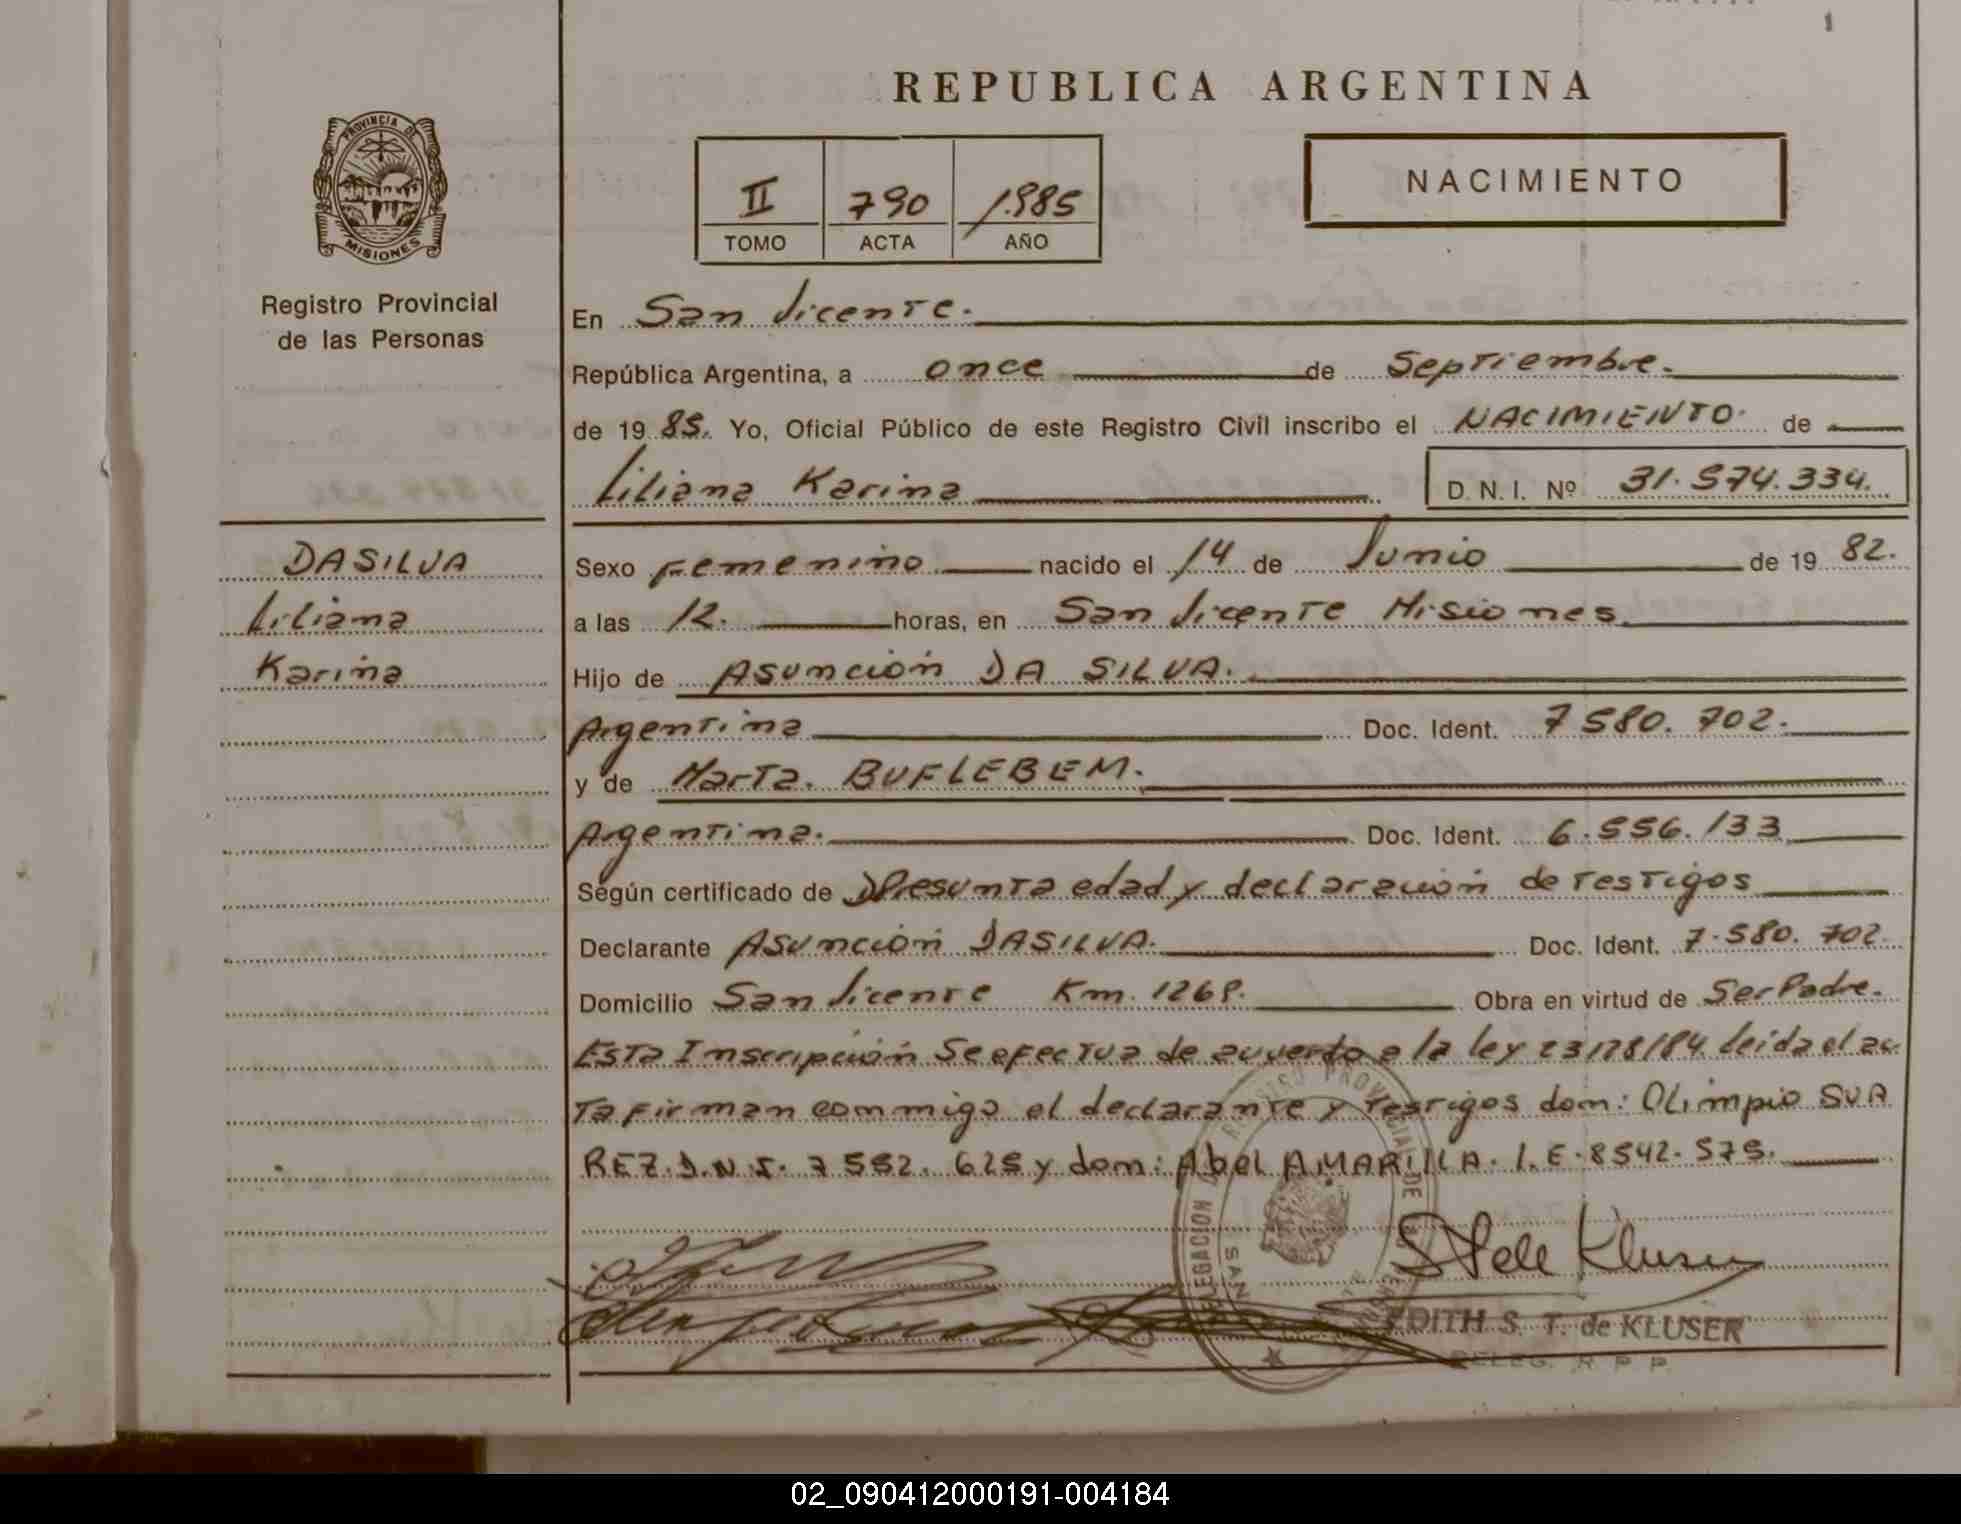 REPUBLICA ARGENTINA
PROVINCIA DE
MISIONES
Registro Provincial
de las Personas
II 790 1985
TOMO ACTA AÑO
NACIMIENTO
En San Vicente.
República Argentina, a once de Septiembre.
de 19 85. Yo, Oficial Público de este Registro Civil inscribo el NACIMIENTO de
Liliana Karina D.N.I. Nº 31.574.334.
DASILVA
Liliana
Karina
Sexo Femenino nacido el 14 de Junio de 19 82.
a las 12. horas, en San Vicente Misiones
Hijo de Asunción DA SILVA.
Argentina Doc. Ident. 7580.702.
y de Marta. BUFLEBEM.
Argentina. Doc. Ident. 6.556.133
Según certificado de Presunta edad y declaración de testigos
Declarante Asunción DASILVA. Doc. Ident. 7.580.702
Domicilio San Vicente Km. 1268. Obra en virtud de Ser Padre.
Esta Inscripción Se efectua de acuerdo a la ley 23128/84 leida el ac
ta firman conmigo el declarante y testigos dom: Olimpio SUA
REZ. D.N.I. 7552.625 y dom: Abel AMARILLA. L.E. 8542.575.
Kluser
EDITH S. T. de KLUSER
DELEG. R P P
02_090412000191-004184